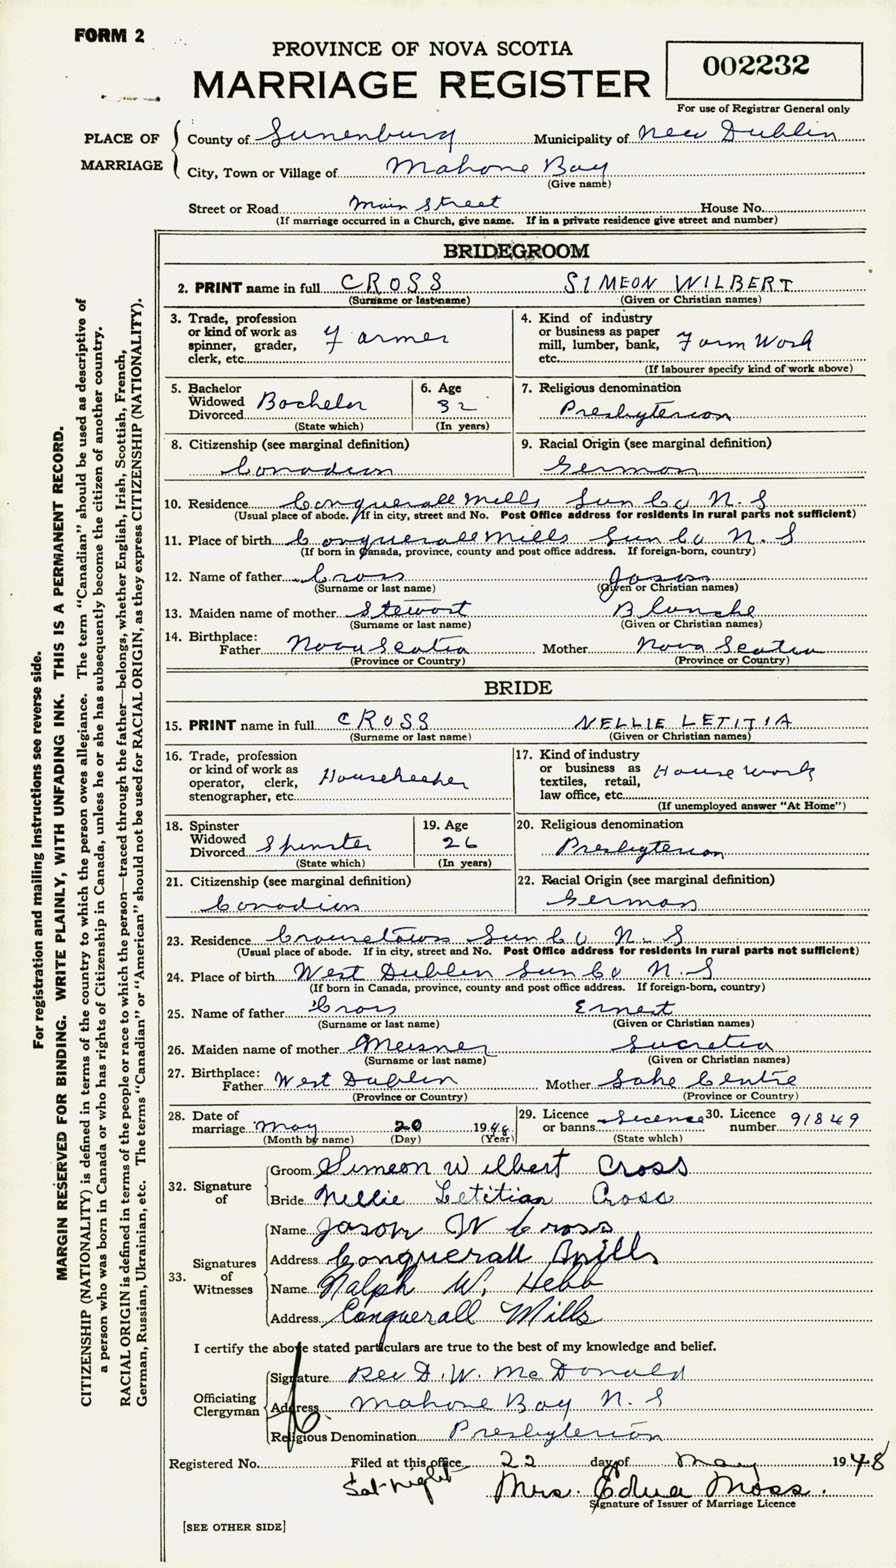 FORM 2
PROVINCE OF NOVA SCOTIA
MARRIAGE REGISTER
002232
For use of Registrar General only
PLACE OF MARRIAGE
County of Lunenburg Municipality of New Dublin
City, Town or Village of Mahone Bay
(Give name)
Street or Road Main Street House No.
(If marriage occurred in a Church, give name. If in a private residence give street and number)
BRIDEGROOM
2. PRINT name in full CROSS SIMEON WILBERT
(Surname or last name) (Given or Christian names)
3. Trade, profession or kind of work as spinner, grader, clerk, etc. Farmer
4. Kind of industry or business as paper mill, lumber, bank, etc. Farm Work
(If labourer specify kind of work above)
5. Bachelor Widowed Divorced Bachelor
(State which)
6. Age 32
(In years)
7. Religious denomination
Presbyterian
8. Citizenship (see marginal definition)
Canadian
9. Racial Origin (see marginal definition)
German
10. Residence Conquerall Mills Lun Co N. S
(Usual place of abode. If in city, street and No. Post Office address for residents in rural parts not sufficient)
11. Place of birth Conquerall Mills Lun Co N. S
(If born in Canada, province, county and post office address. If foreign-born, country)
12. Name of father Cross
(Surname or last name) (Given or Christian names)
13. Maiden name of mother Stewart Blanche
(Surname or last name) (Given or Christian names)
14. Birthplace:
Father Nova Scotia Mother Nova Scotia
(Province or Country) (Province or Country)
BRIDE
15. PRINT name in full CROSS NELLIE LETITIA
(Surname or last name) (Given or Christian names)
16. Trade, profession or kind of work as operator, clerk, stenographer, etc. Housekeeper
17. Kind of industry or business as textiles, retail, law office, etc. House work
(If unemployed answer "At Home")
18. Spinster Widowed Divorced Spinster
(State which)
19. Age 26
(In years)
20. Religious denomination
Presbyterian
21. Citizenship (see marginal definition)
Canadian
22. Racial Origin (see marginal definition)
German
23. Residence Crousetown Lun Co N. S
(Usual place of abode. If in city, street and No. Post Office address for residents in rural parts not sufficient)
24. Place of birth West Dublin Lun Co N. S
(If born in Canada, province, county and post office address. If foreign-born, country)
25. Name of father Cross Ernest
(Surname or last name) (Given or Christian names)
26. Maiden name of mother Meisner Lucretia
(Surname or last name) (Given or Christian names)
27. Birthplace:
Father West Dublin Mother Lake Centre
(Province or Country) (Province or Country)
28. Date of marriage May 20 1948
(Month by name) (Day) (Year)
29. Licence or banns Licence
(State which)
30. Licence number 91849
32. Signature of
Groom Simeon Wilbert Cross
Bride Nellie Letitian Cross
33. Signatures of Witnesses
Name Jason W Cross
Address Conquerall Mills
Name Ralph W. Hebb
Address Conquerall Mills
I certify the above stated particulars are true to the best of my knowledge and belief.
Officiating Clergyman
Signature Rev D. W. McDonald
Address Mahone Bay N. S
Religious Denomination Presbyterian
Registered No. Filed at this office 22 day of May 1948
Sat night Mrs. Edna Moss.
Signature of Issuer of Marriage Licence
[SEE OTHER SIDE]
For registration and mailing instructions see reverse side.
MARGIN RESERVED FOR BINDING. WRITE PLAINLY, WITH UNFADING INK. THIS IS A PERMANENT RECORD.
CITIZENSHIP (NATIONALITY) is defined in terms of the country to which the person owes allegiance. The term "Canadian" should be used as descriptive of
a person who was born in Canada or who has rights of Citizenship in Canada, unless he or she has subsequently become the citizen of another country.
RACIAL ORIGIN is defined in terms of the people or race to which the person—traced through the father—belongs, whether English, Irish, Scottish, French,
German, Russian, Ukrainian, etc. The terms "Canadian" or "American" should not be used for RACIAL ORIGIN, as they express CITIZENSHIP (NATIONALITY).